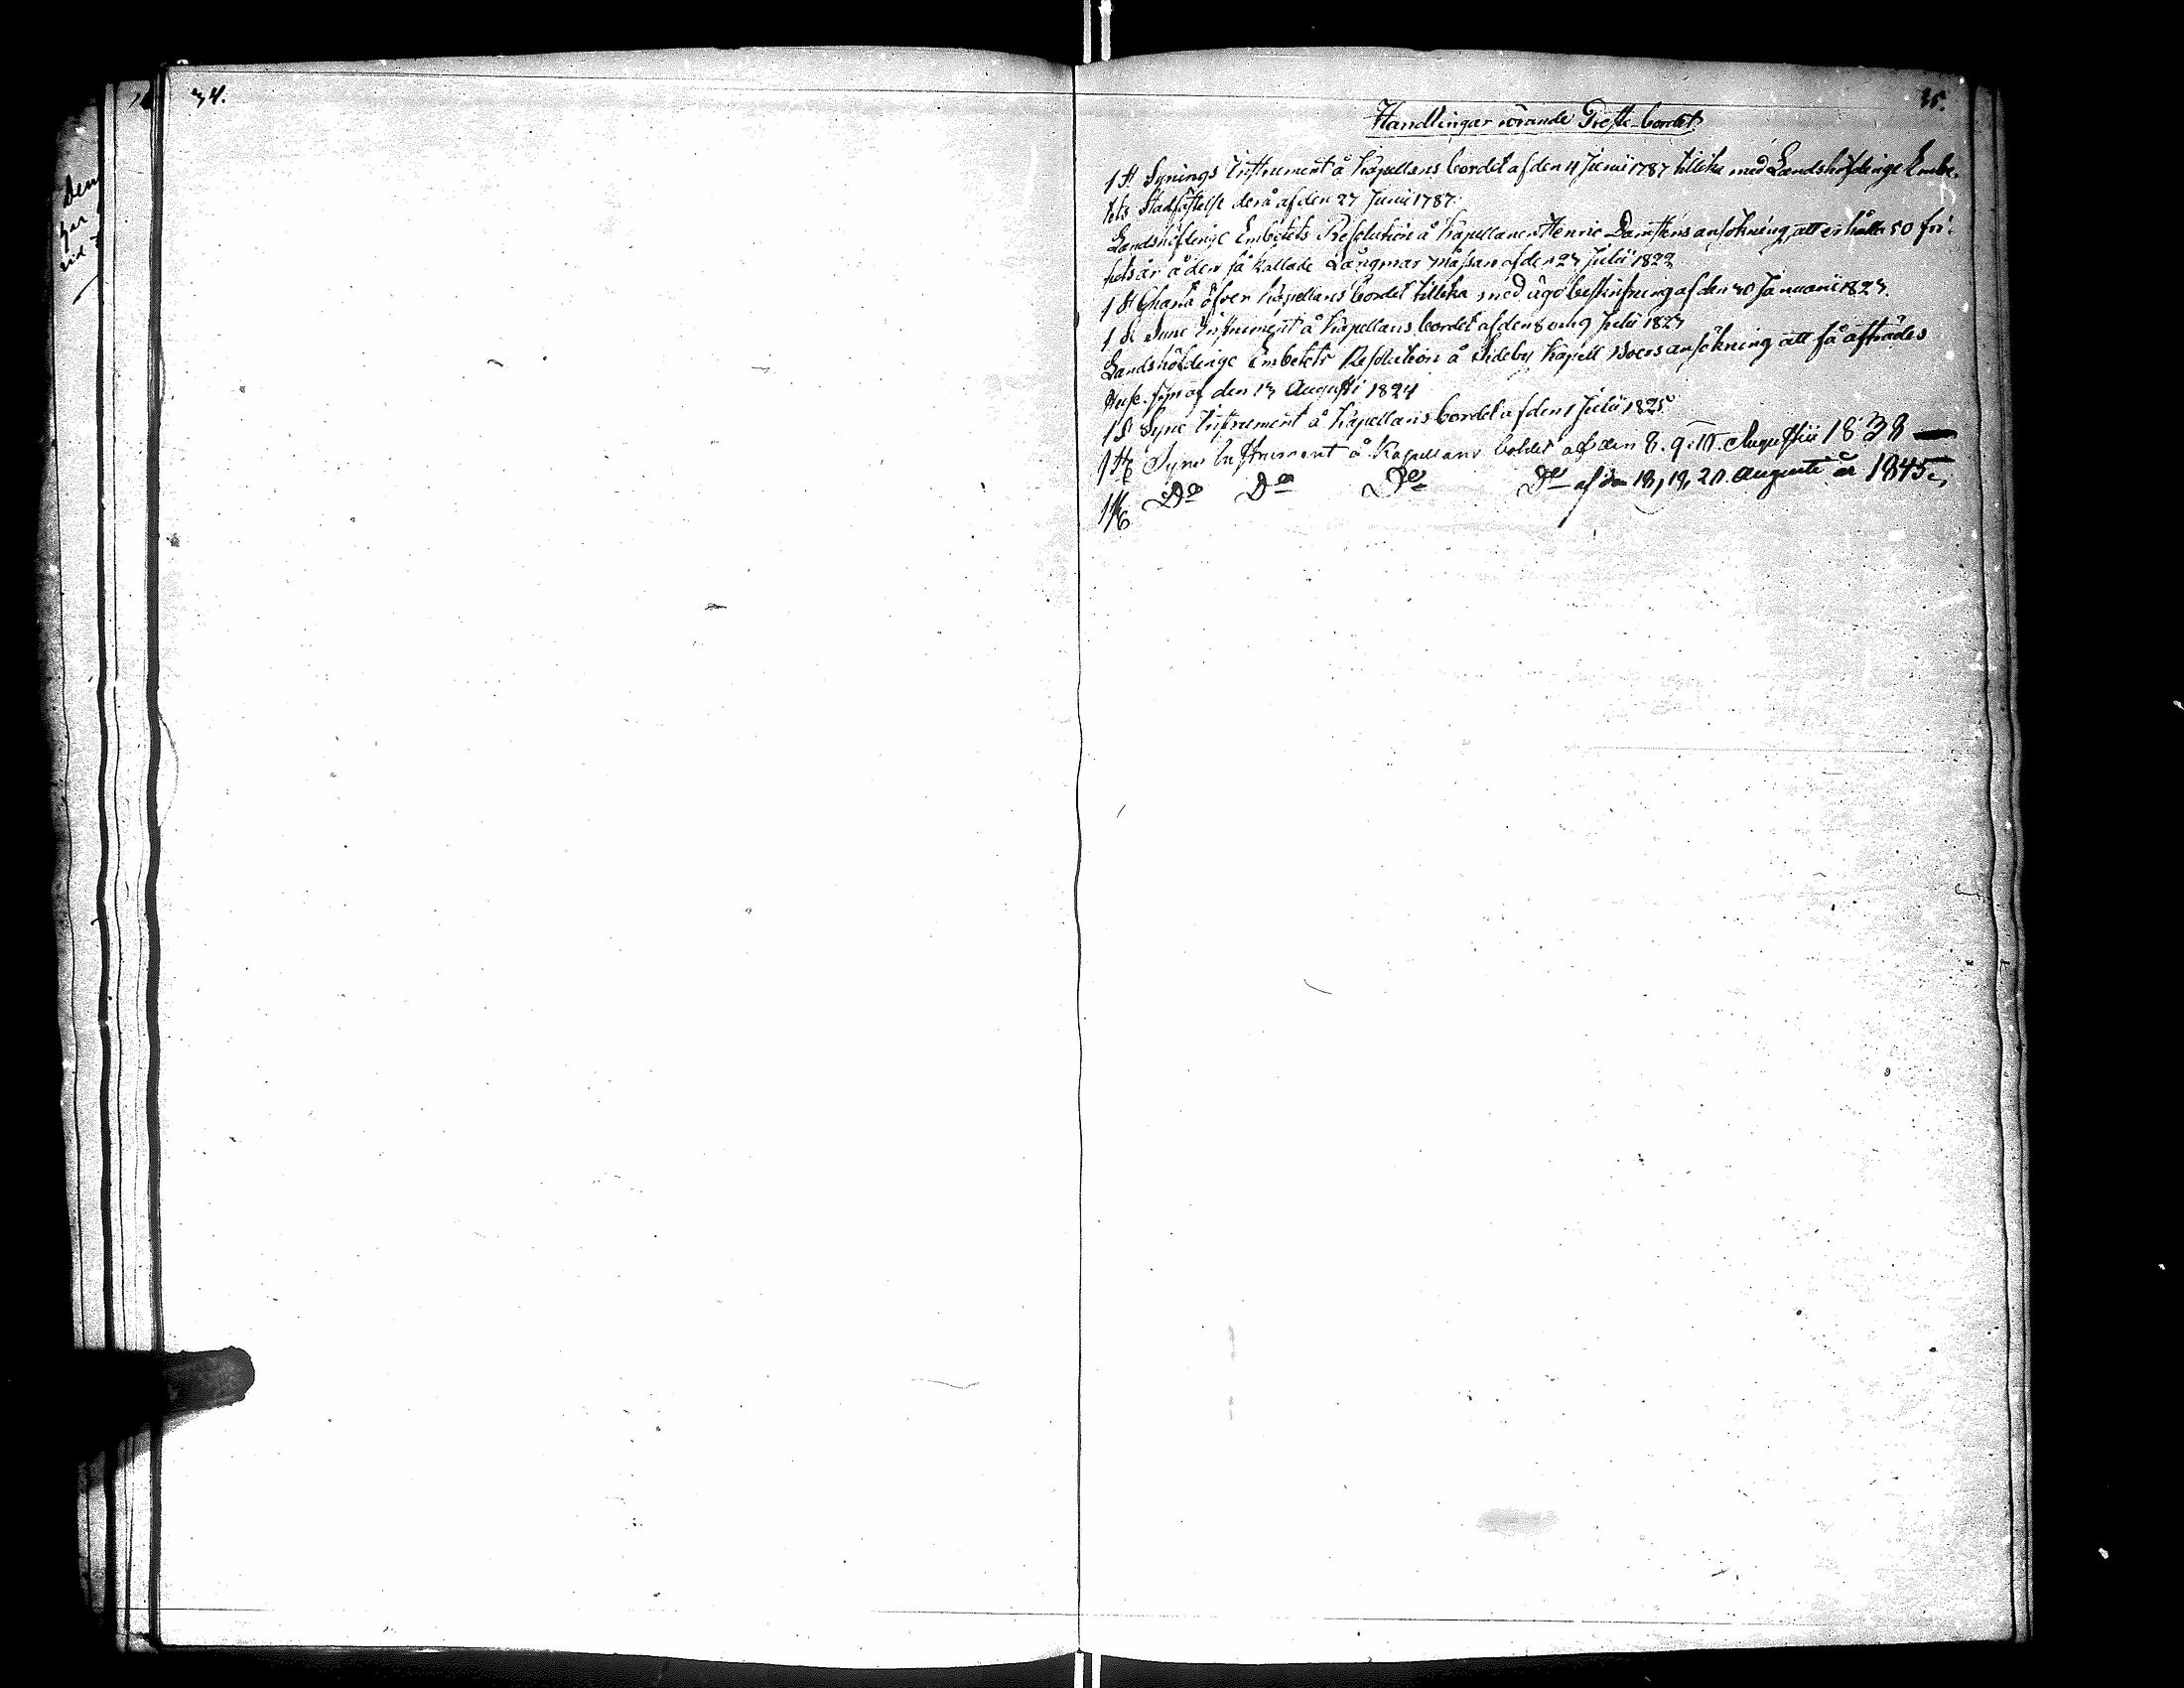 34.
35.
Handlingar rörande Preste-bordet.
1 St Synings Instrument å Kapellans bordet af den 11 Junii 1787 tillika med Landshöfdinge Embe-
tets Stadfästelse derå af den 27 Junii 1787.
Landshöfdinge Embetets Resolution å Kapellanen Henric Damsténs ansökning, att erhålla 50 fri-
hets år å den så kallade Långmar måssan af den 23 Julii 1822
1 St Charta öfver Kapellans bordet tillika med ägobeskrifning af den 30 Januarii 1823.
1 St Syne Instrument å Kapellans bordet af den 8 och 9 Julii 1823
Landshöfdinge Embetets Resolution å Sideby Kapell Boers ansökning att få afträdes
Huse-syn af den 13 Augusti 1824
1 St Syne Instrument å Kapellans bordet af den 1 Julii 1825.
1 St Syne Instrument å Kapellans bohlet af den 8. 9. 10. Augustii 1838
1 St Do Do Do Do af den 18, 19, 20. Augusti år 1845.
Den